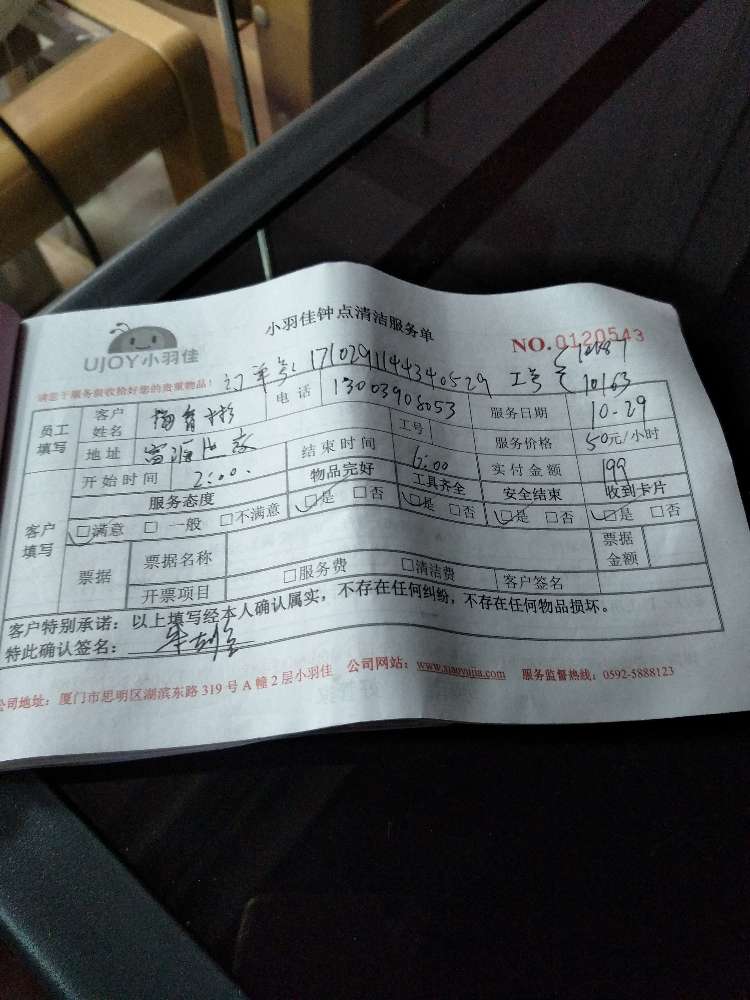 小羽佳钟点清洁服务单
UJOY小羽佳
NO.0120543
请您于服务前收拾好您的贵重物品！ 订单号: 171029114434040529 工号 10163
员工填写 客户姓名 电话 13003908053 服务日期 10-29
地址 工号 服务价格 50元/小时
开始时间 2:00 结束时间 6:00 实付金额 199
客户填写 服务态度 物品完好 工具齐全 安全结束 收到卡片
□满意 □一般 □不满意 □是 □否 □是 □否 □是 □否 □是 □否
票据 票据名称 票据金额
开票项目 □服务费 □清洁费 客户签名
客户特别承诺：以上填写经本人确认属实，不存在任何纠纷，不存在任何物品损坏。
特此确认签名：
公司地址：厦门市思明区湖滨东路319号A幢2层小羽佳 公司网站：www.xiaoyujia.com 服务监督热线：0592-5888123